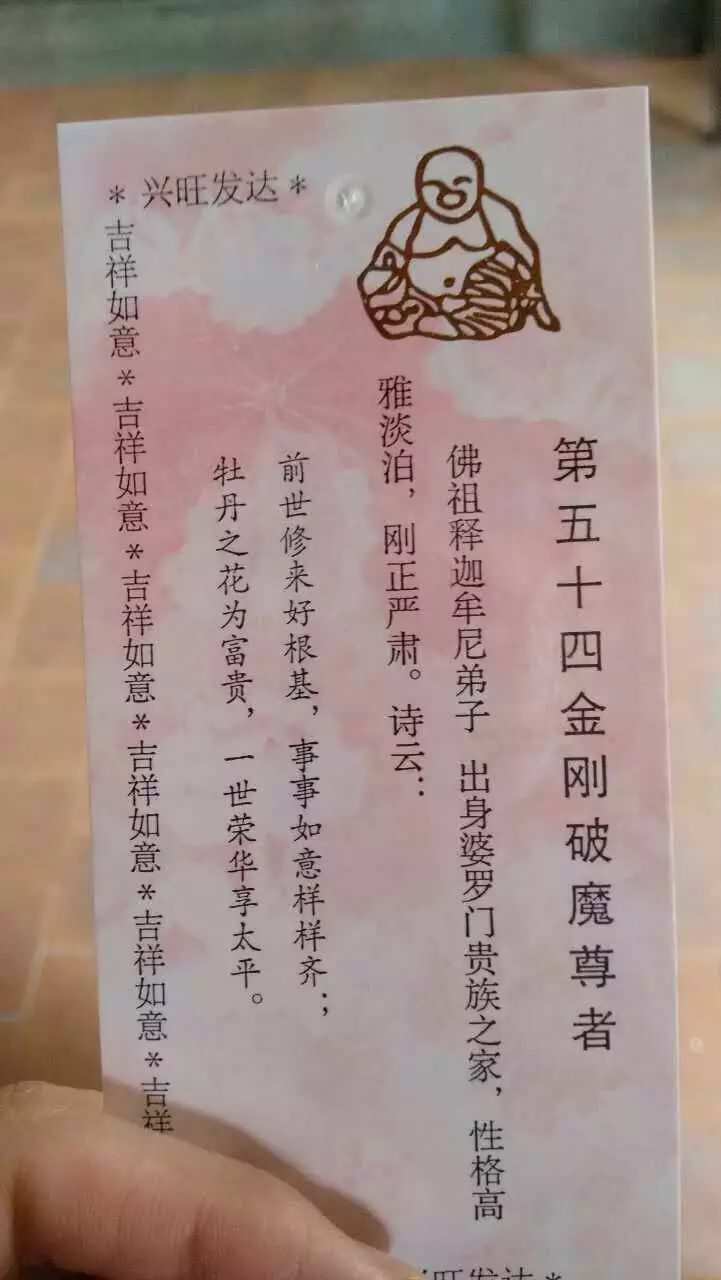 * 兴旺发达 *
第五十四金刚破魔尊者
佛祖释迦牟尼弟子 出身婆罗门贵族之家，性格高
雅淡泊，刚正严肃。诗云：
前世修来好根基，事事如意样样齐；
牡丹之花为富贵，一世荣华享太平。
吉祥如意 * 吉祥如意 * 吉祥如意 * 吉祥如意 * 吉祥如意 * 吉祥
旺发达 *